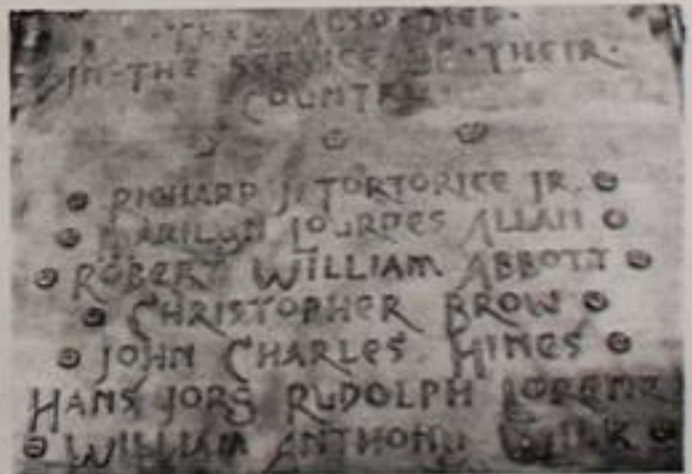 THEY ALSO DIED
IN·THE SERVICE OF·THEIR·
COUNTRY
RICHARD J. TORTORICE JR.
MARILYN LOURDES ALLAN
ROBERT WILLIAM ABBOTT
CHRISTOPHER BROW
JOHN CHARLES HINES
HANS JORS RUDOLPH LORENZ
WILLIAM ANTHONY WILK